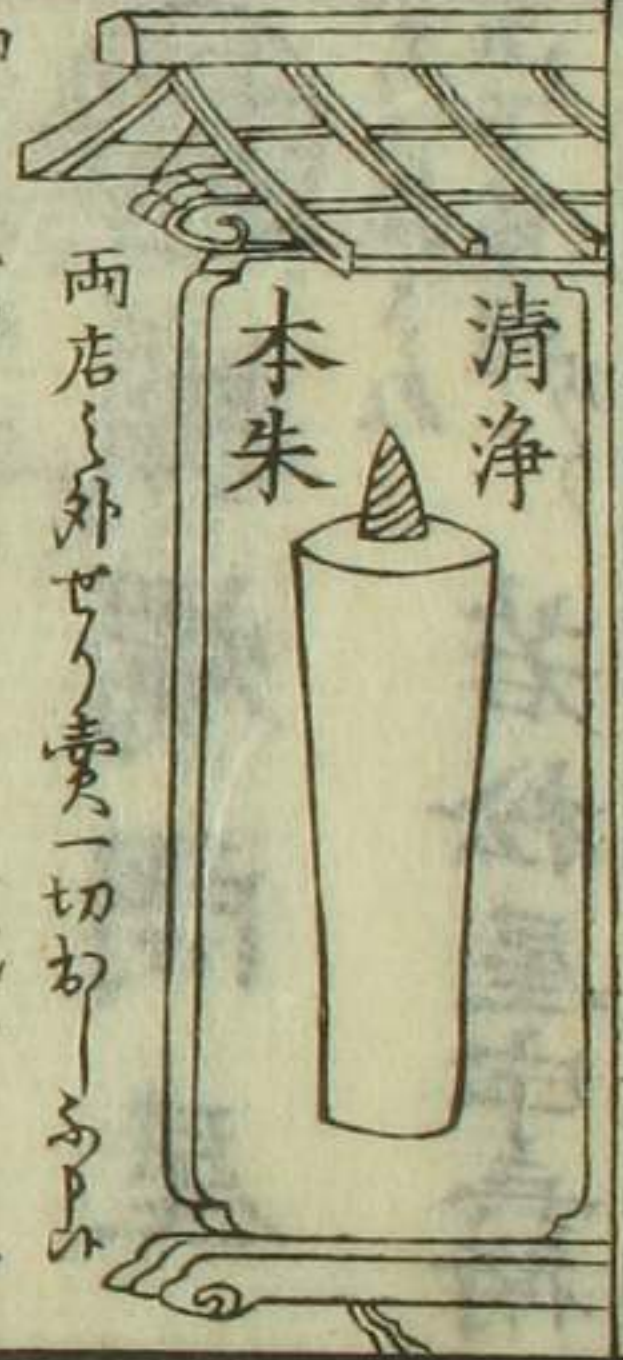 清浄
本朱
両店之外せり賣一切出し不申候